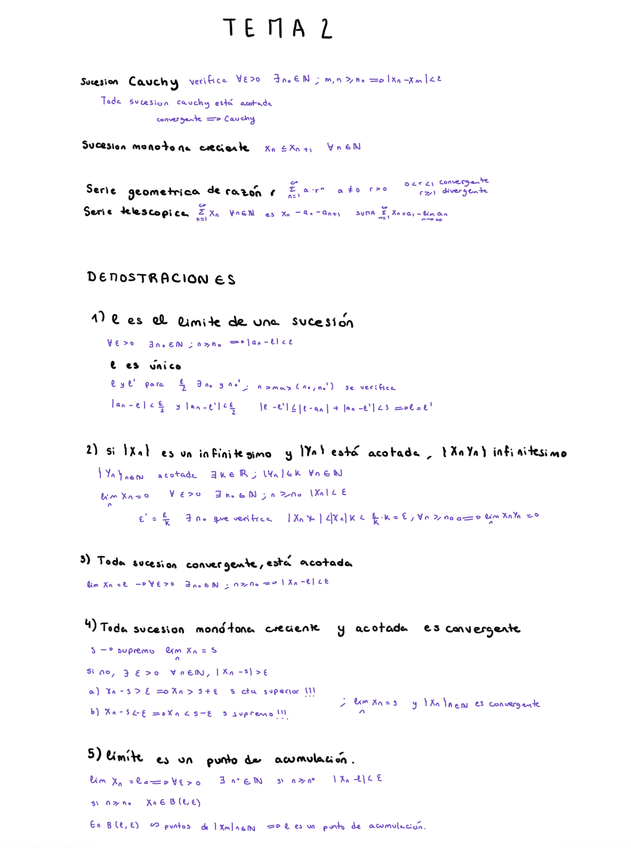 TEMA 2
Sucesion Cauchy verifica ∀ε>0 ∃n₀∈ℕ ; m,n ≥ n₀ ⟹ |xₙ-xₘ|<ε
Toda sucesion cauchy está acotada
convergente ⟹ Cauchy
Sucesion monotona creciente xₙ ≤ xₙ₊₁ ∀n∈ℕ
Serie geometrica de razón r ∑ₙ₌₁^∞ a·rⁿ a≠0 r>0 0<r<1 convergente
r≥1 divergente
Serie telescopica ∑ₙ₌₁^∞ xₙ ∀n∈ℕ es xₙ = aₙ-aₙ₊₁ suma ∑ₙ₌₁^∞ xₙ=a₁-lim aₙ
n→∞
DEMOSTRACIONES
1) l es el limite de una sucesión
∀ε>0 ∃n₀∈ℕ ; n≥n₀ ⟹ |aₙ-l|<ε
l es único
l y l' para ε/2 ∃n₀ y n₀' ; n≥max(n₀,n₀') se verifica
|aₙ-l|<ε/2 y |aₙ-l'|<ε/2 |l-l'|≤|l-aₙ|+|aₙ-l'|<ε ⟹ l=l'
2) si {Xₙ} es un infinitesimo y {Yₙ} está acotada, {XₙYₙ} infinitesimo
{Yₙ}ₙ∈ℕ acotada ∃k∈ℝ ; |Yₙ|≤k ∀n∈ℕ
lim Xₙ=0 ∀ε>0 ∃n₀∈ℕ ; n≥n₀ |Xₙ|<ε
n
ε'=ε/k ∃n₀ que verifica |XₙYₙ|<|Xₙ|k<ε/k·k=ε, ∀n≥n₀ ⟹ lim XₙYₙ=0
3) Toda sucesion convergente, está acotada
lim Xₙ=l → ∀ε>0 ∃n₀∈ℕ ; n≥n₀ ⟹ |Xₙ-l|<ε
4) Toda sucesion monótona creciente y acotada es convergente
s → supremo lim Xₙ = s
n
si no, ∃ε>0 ∀n∈ℕ, |Xₙ-s|>ε
a) Xₙ-s>ε ⟹ Xₙ>s+ε s cta superior !!!
b) Xₙ-s<-ε ⟹ Xₙ<s-ε s supremo !!! ; lim Xₙ=s y {Xₙ}ₙ∈ℕ es convergente
n
5) límite es un punto de acumulación.
lim Xₙ=l ⟹ ∀ε>0 ∃n₀∈ℕ si n≥n₀ |Xₙ-l|<ε
si n≥n₀ Xₙ∈B(l,ε)
En B(l,ε) ∞ puntos de {Xₙ}ₙ∈ℕ ⟹ l es un punto de acumulación.